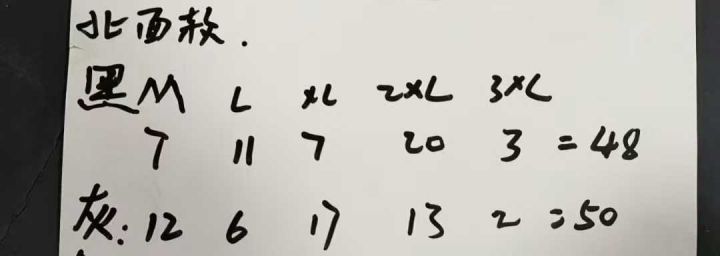 北面款.
黑 M L XL 2XL 3XL
7 11 7 20 3 =48
灰: 12 6 17 13 2 =50